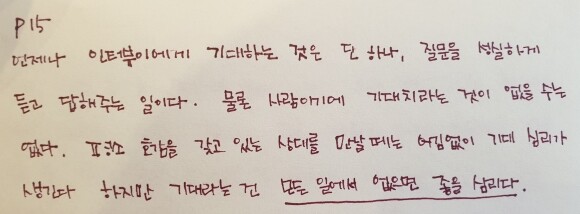 P15
언제나 인터뷰이에게 기대하는 것은 단 하나, 질문을 성실하게
듣고 답해주는 일이다. 물론 사람이기에 기대치라는 것이 없을 수는
없다. 평소 호감을 갖고 있는 상대를 만날 때는 어김없이 기대 심리가
생긴다 하지만 기대라는 건 모든 일에서 없으면 좋을 심리다.